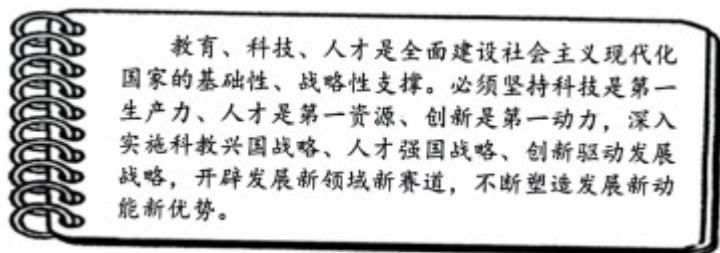 教育、科技、人才是全面建设社会主义现代化
国家的基础性、战略性支撑。必须坚持科技是第一
生产力、人才是第一资源、创新是第一动力，深入
实施科教兴国战略、人才强国战略、创新驱动发展
战略，开辟发展新领域新赛道，不断塑造发展新动
能新优势。